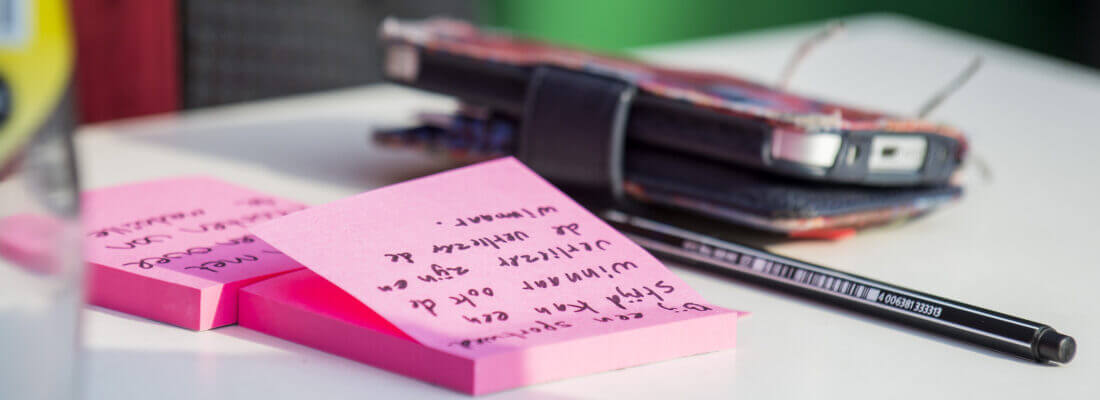 Bij een sportwed
strijd kan een
winnaar ook de
verliezer zijn en
de verliezer de
winnaar.
met
van
4 006381 333313